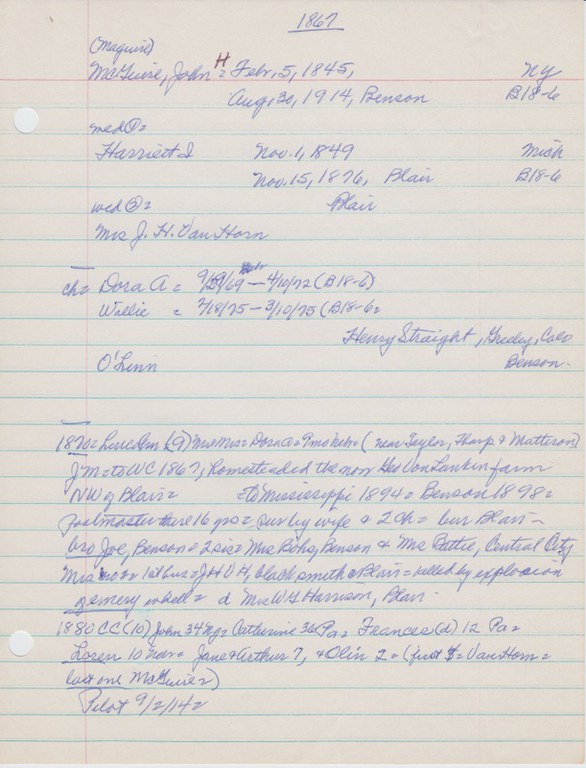 1867
(Maguire)
McGuire, John H = Febr, 5, 1845, NY
Aug, 30, 1914, Benson B18-6
med ①=
Harriett I Nov. 1, 1849 Mich
Nov. 15, 1876, Blair B18-6
med ②= Blair
Mrs J. H. Van Horn
ch= Dora A = 9/ /69 — 4/10/72 (B18-6)
Willie = 2/18/75 — 3/10/75 (B18-6=
Henry Straight, Greeley, Colo
O'Linn Benson-
1870= (9) Dora a= 9mo Nebr= (near Taylor, Tharp & Matteson)
J'm=to WC 1867, homesteaded the now Geo Van Lankin farm
NW of Blair= =to Mississippi 1894= Benson 1898=
Postmaster there 16 yrs= sur by wife & 2 ch= bur Blair-
bro Joe, Benson & 2 sis= Mrs Benson & Mrs Central City
Mrs 1st hus= J H V H, blacksmith Blair= killed by explosion
of emery wheel= d Mrs W G Harrison, Blair.
1880 CC (10) John 34 NY= Catherine 36 Pa= Frances (d) 12 Pa=
Loren 10 Jane & Arthur 7, & Olin 2= (first Van Horn=
last one McGuire=)
Pilot 9/2/14=